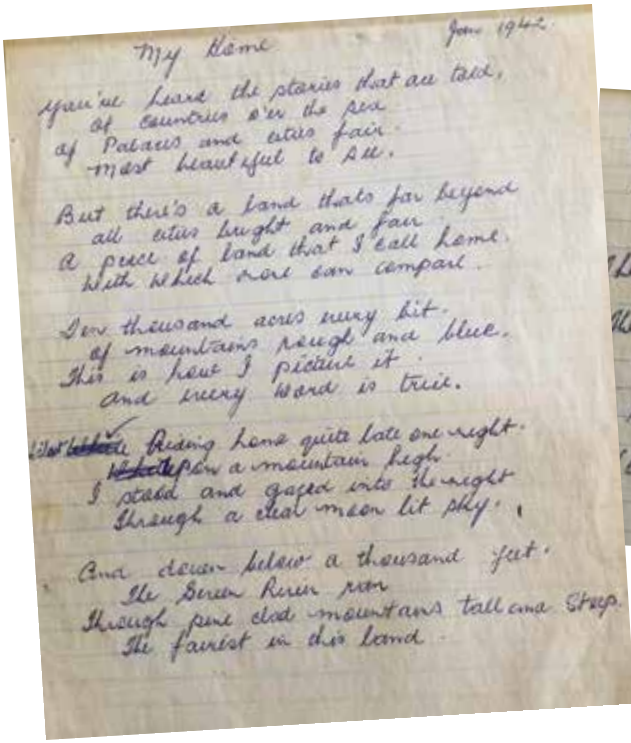 My Home
Jan 1942.
You've heard the stories that are told,
of countries o'er the sea
of Palaces and cities fair.
Most beautiful to see.
But there's a land thats far beyond
all cities bright and fair.
A piece of land that I call home.
With which none can compare.
Ten thousand acres every bit.
of mountains rough and blue.
This is how I picture it.
and every word is true.
Riding home quite late one night.
on a mountain high
I stood and gazed into the night
Through a clear moon lit sky.
And down below a thousand feet.
The Green River ran
Through pine clad mountains tall and Steep.
The fairest in this land.